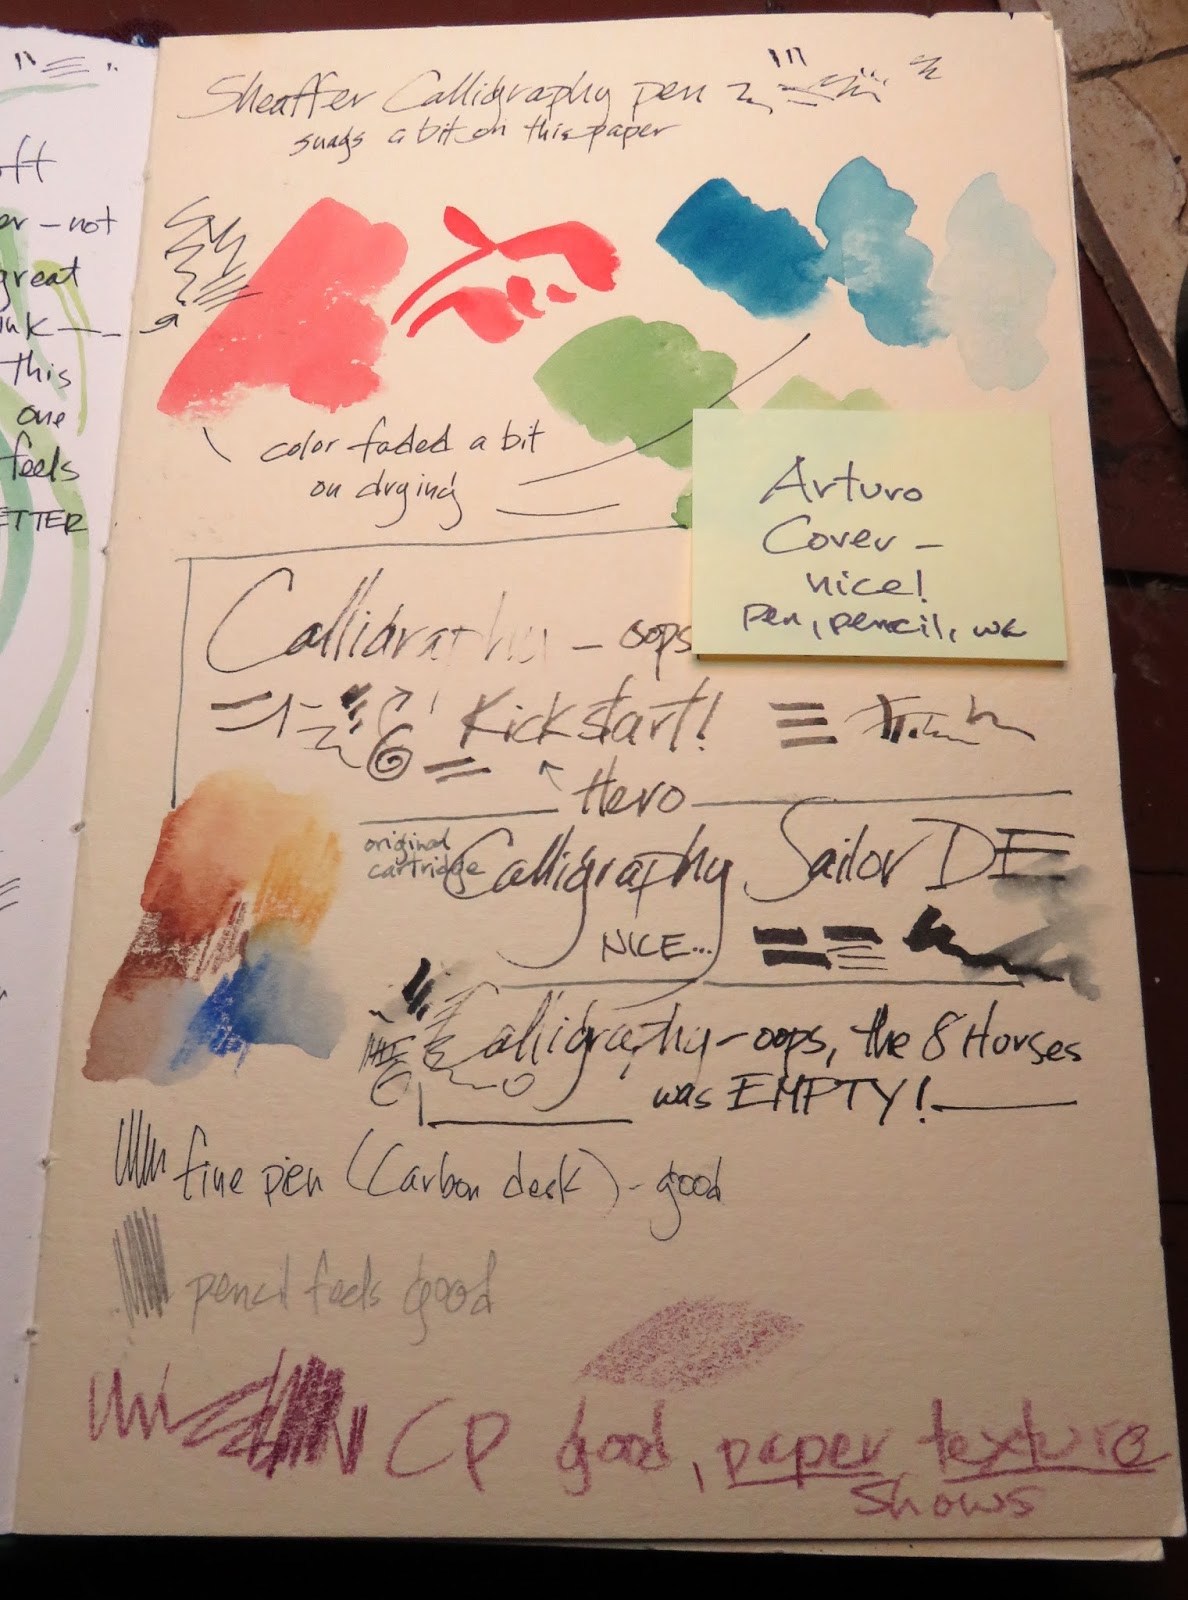 oft
er – not
great
ink
this
one
feels
ETTER
Sheaffer Calligraphy pen
snags a bit on this paper
color faded a bit
on drying
Arturo
Cover –
nice!
pen, pencil, wc
Calligraphy – oops
Kickstart!
Hero
original
cartridge
Calligraphy Sailor DE
NICE...
Calligraphy – oops, the 8 Horses
was EMPTY!
fine pen (Carbon desk) – good
pencil feels good
CP good, paper texture
shows